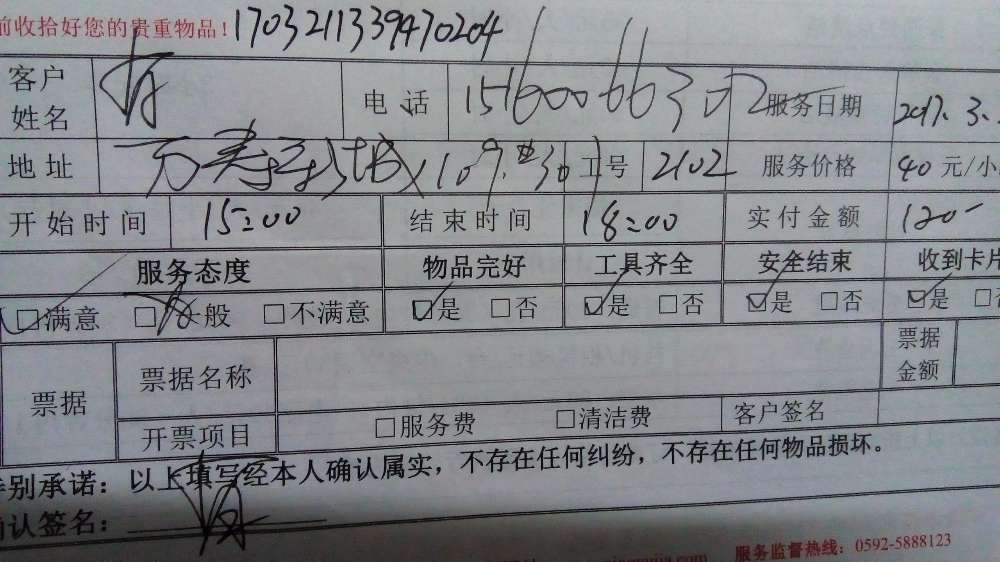 前收拾好您的贵重物品！1703211339470204
客户姓名 电话 15160066302 服务日期 2017.3.
地址 工号 2102 服务价格 40元/小
开始时间 15:00 结束时间 18:00 实付金额 120-
服务态度 物品完好 工具齐全 安全结束 收到卡片
□满意 □一般 □不满意 ☑是 □否 ☑是 □否 ☑是 □否 ☑是
票据 票据名称 票据金额
开票项目 □服务费 □清洁费 客户签名
特别承诺：以上填写经本人确认属实，不存在任何纠纷，不存在任何物品损坏。
确认签名：
服务监督热线：0592-5888123